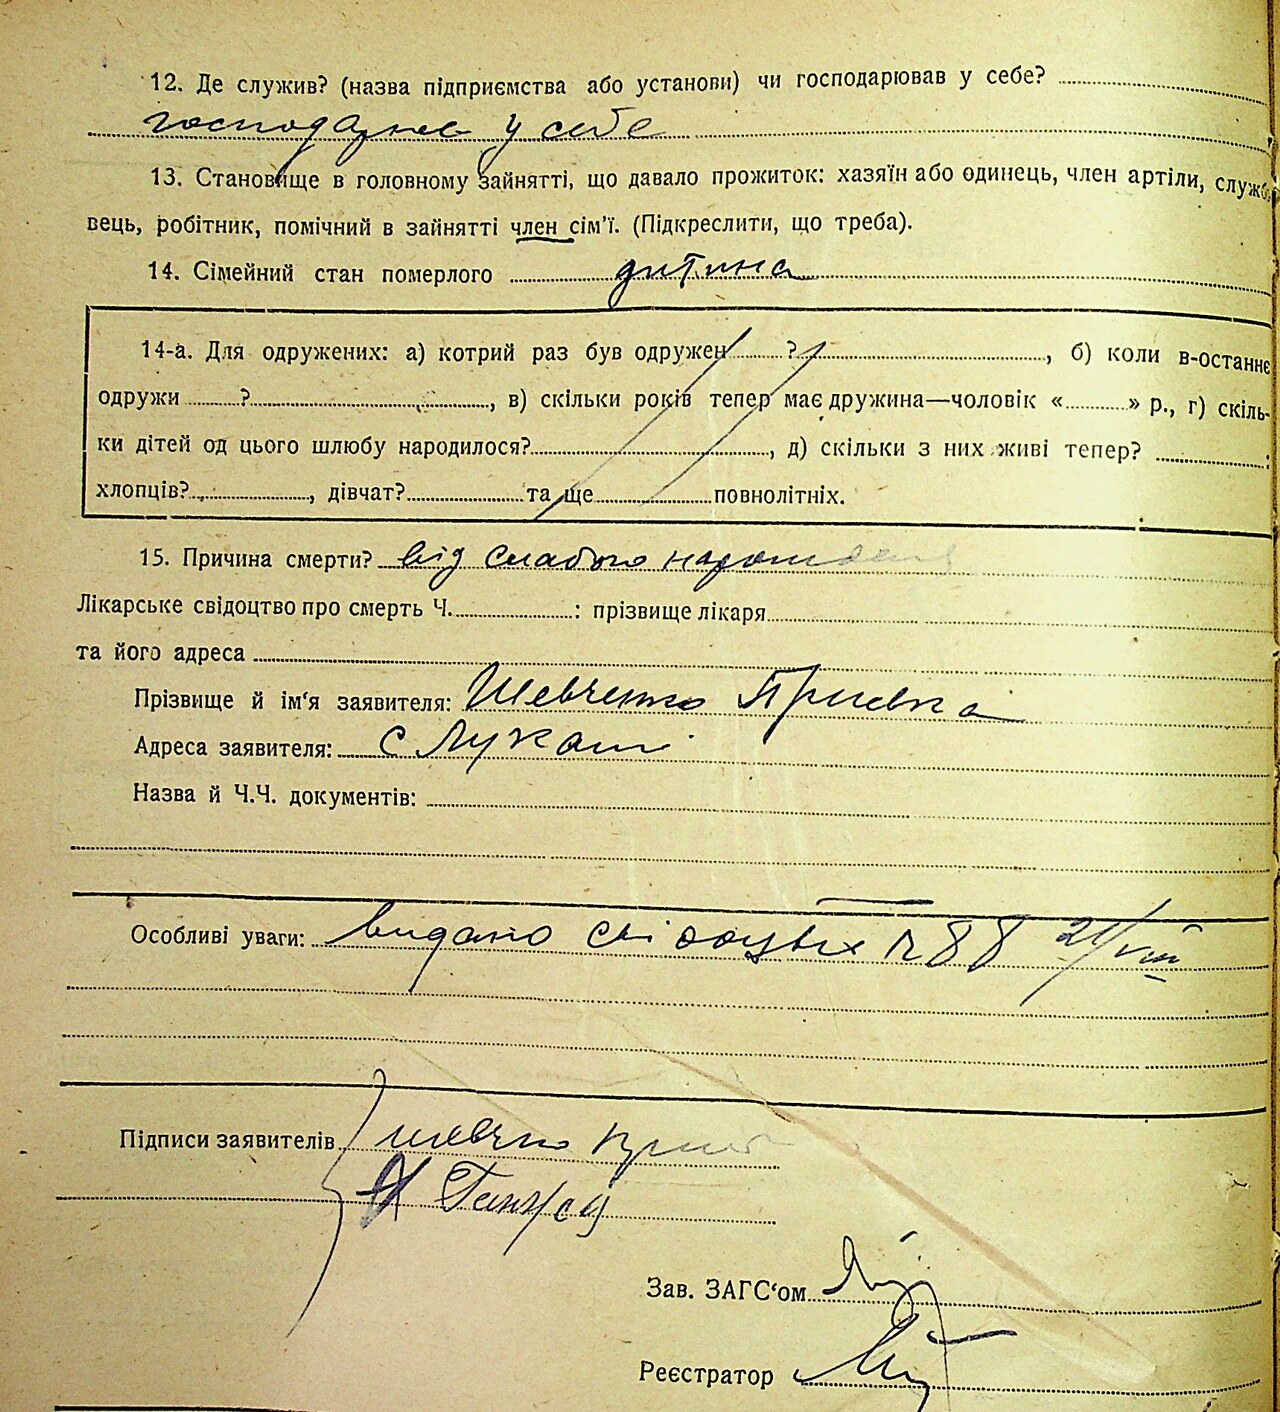 12. Де служив? (назва підприємства або установи) чи господарював у себе?
господарює у себе
13. Становище в головному зайнятті, що давало прожиток: хазяїн або одинець, член артіли, службо-
вець, робітник, помічний в зайнятті член сім'ї. (Підкреслити, що треба).
14. Сімейний стан померлого дитина
14-а. Для одружених: а) котрий раз був одружен ? , б) коли в-останнє
одружи ? , в) скільки років тепер має дружина—чоловік « » р., г) скіль-
ки дітей од цього шлюбу народилося? , д) скільки з них живі тепер? :
хлопців? , дівчат? та ще повнолітніх.
15. Причина смерти? від слабого народження
Лікарське свідоцтво про смерть Ч. : прізвище лікаря
та його адреса
Прізвище й ім'я заявителя: Шевченко
Адреса заявителя: с Лукаші
Назва й Ч.Ч. документів:
Особливі уваги: видано свідоцтво № 88 21/VIII
Підписи заявителів
Зав. ЗАГС'ом
Реєстратор